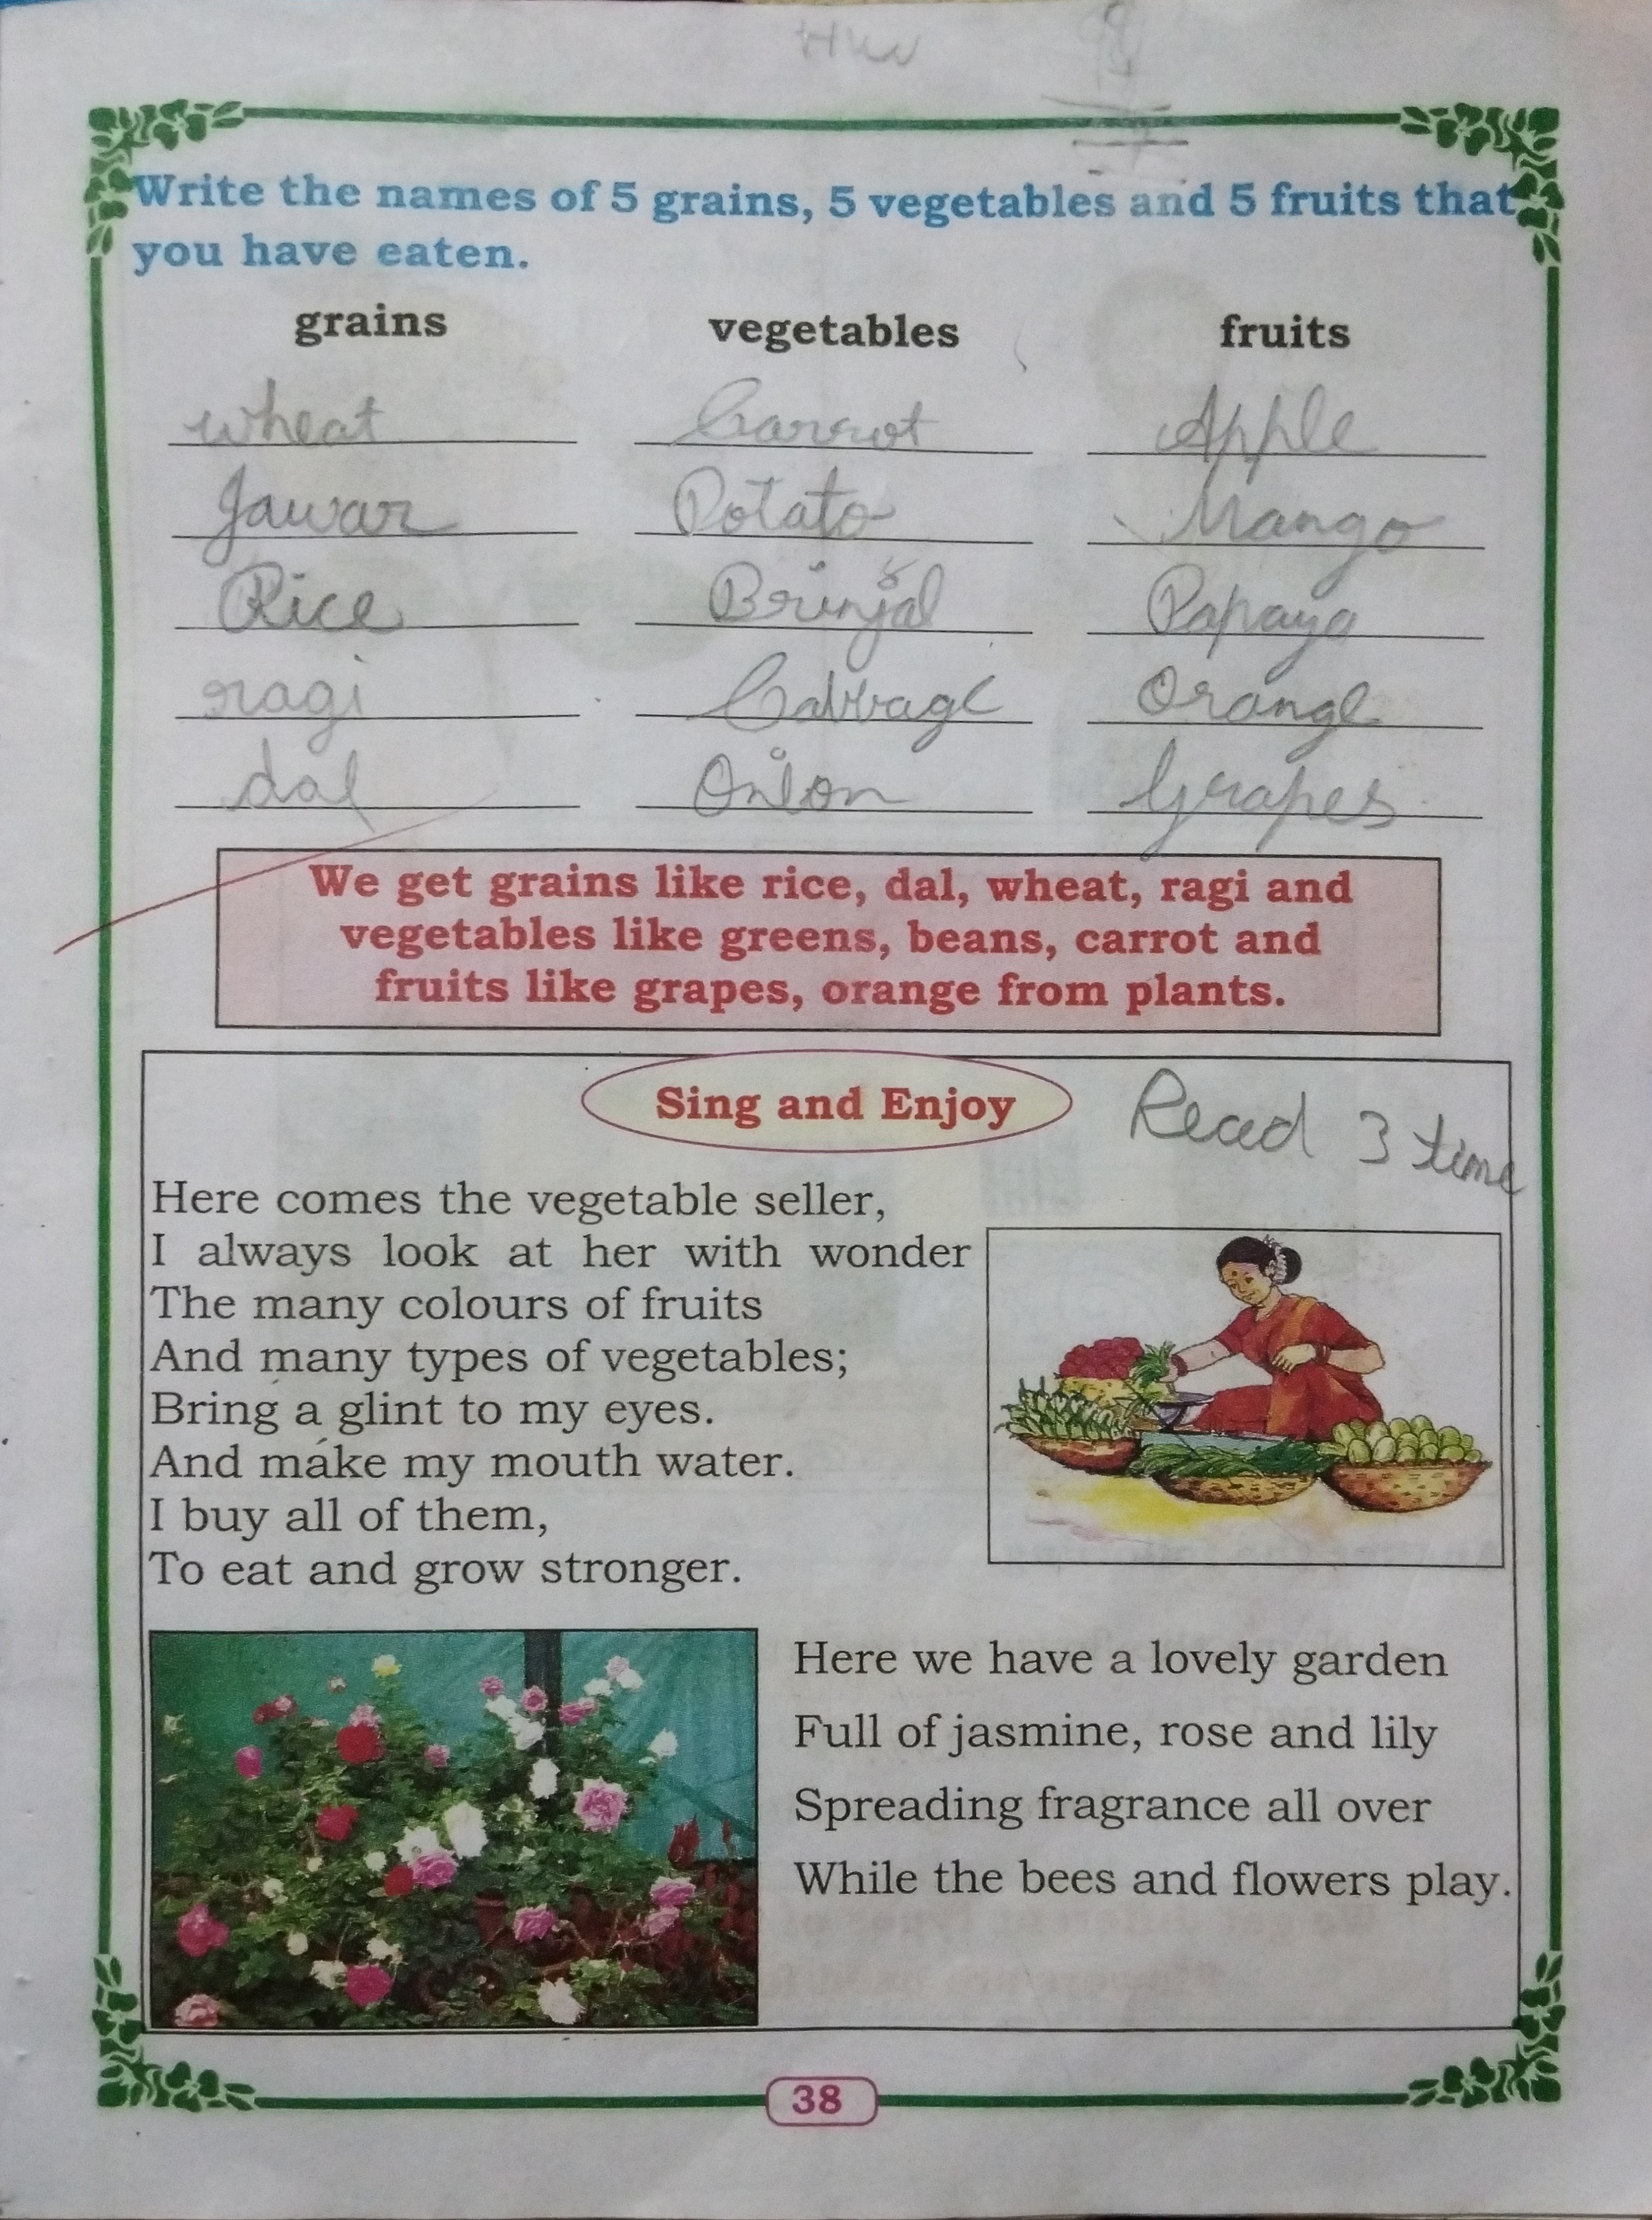 HW
Write the names of 5 grains, 5 vegetables and 5 fruits that
you have eaten.
grains vegetables fruits
wheat Carrot Apple
Jawar Potato Mango
Rice Brinjal Papaya
ragi Cabbage Orange
dal Onion Grapes
We get grains like rice, dal, wheat, ragi and
vegetables like greens, beans, carrot and
fruits like grapes, orange from plants.
Sing and Enjoy
Read 3 time
Here comes the vegetable seller,
I always look at her with wonder
The many colours of fruits
And many types of vegetables;
Bring a glint to my eyes.
And make my mouth water.
I buy all of them,
To eat and grow stronger.
Here we have a lovely garden
Full of jasmine, rose and lily
Spreading fragrance all over
While the bees and flowers play.
38